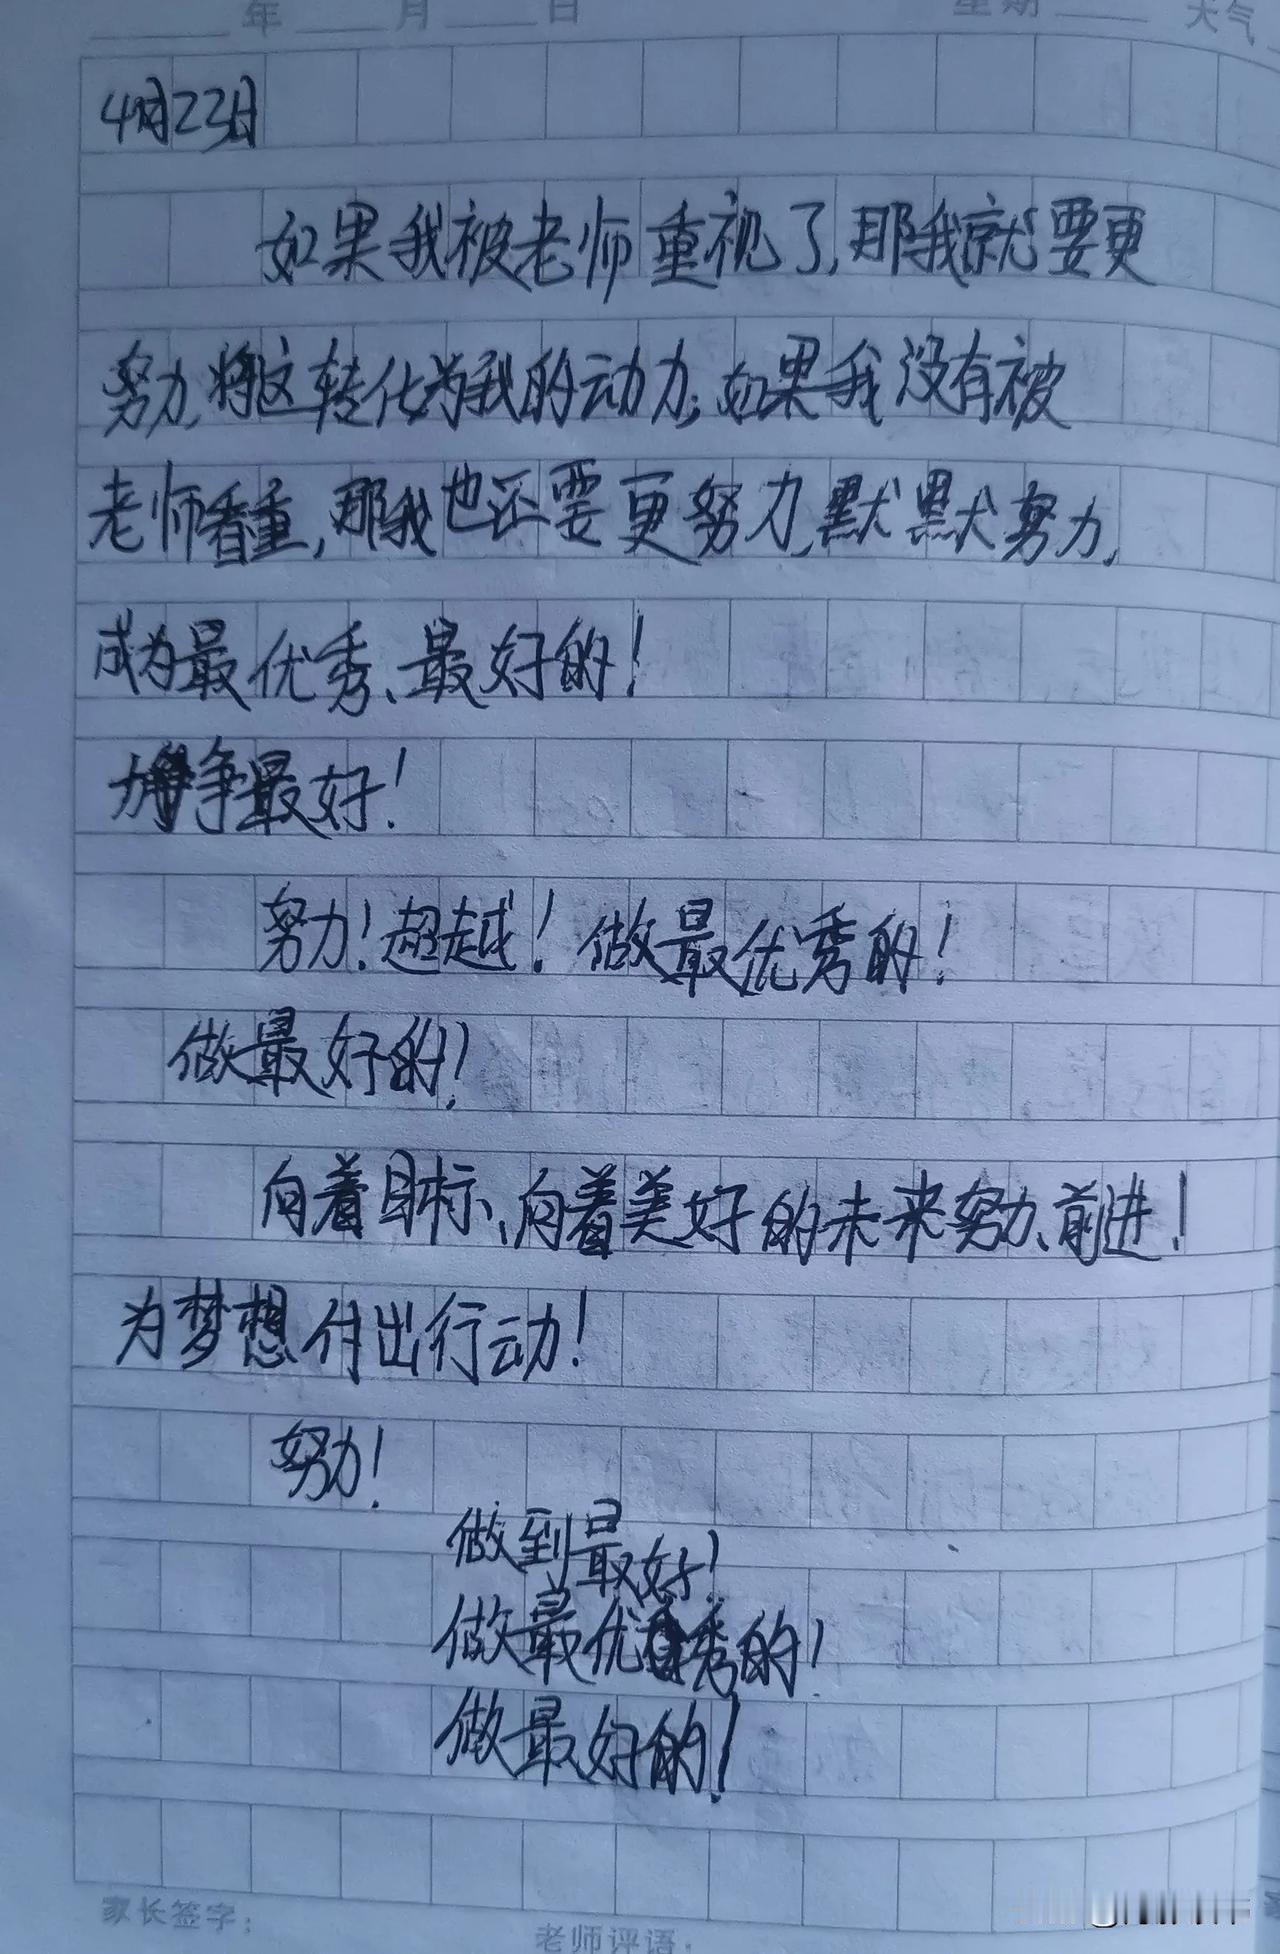 年 月 日 星期 天气
4月23日
如果我被老师重视了,那我就要更
努力,将这转化为我的动力;如果我没有被
老师看重,那我也还要更努力,默默努力,
成为最优秀、最好的!
力争最好!
努力!超越!做最优秀的!
做最好的!
向着目标、向着美好的未来努力、前进!
为梦想付出行动!
努力!
做到最好!
做最优秀的!
做最好的!
家长签字:
老师评语: